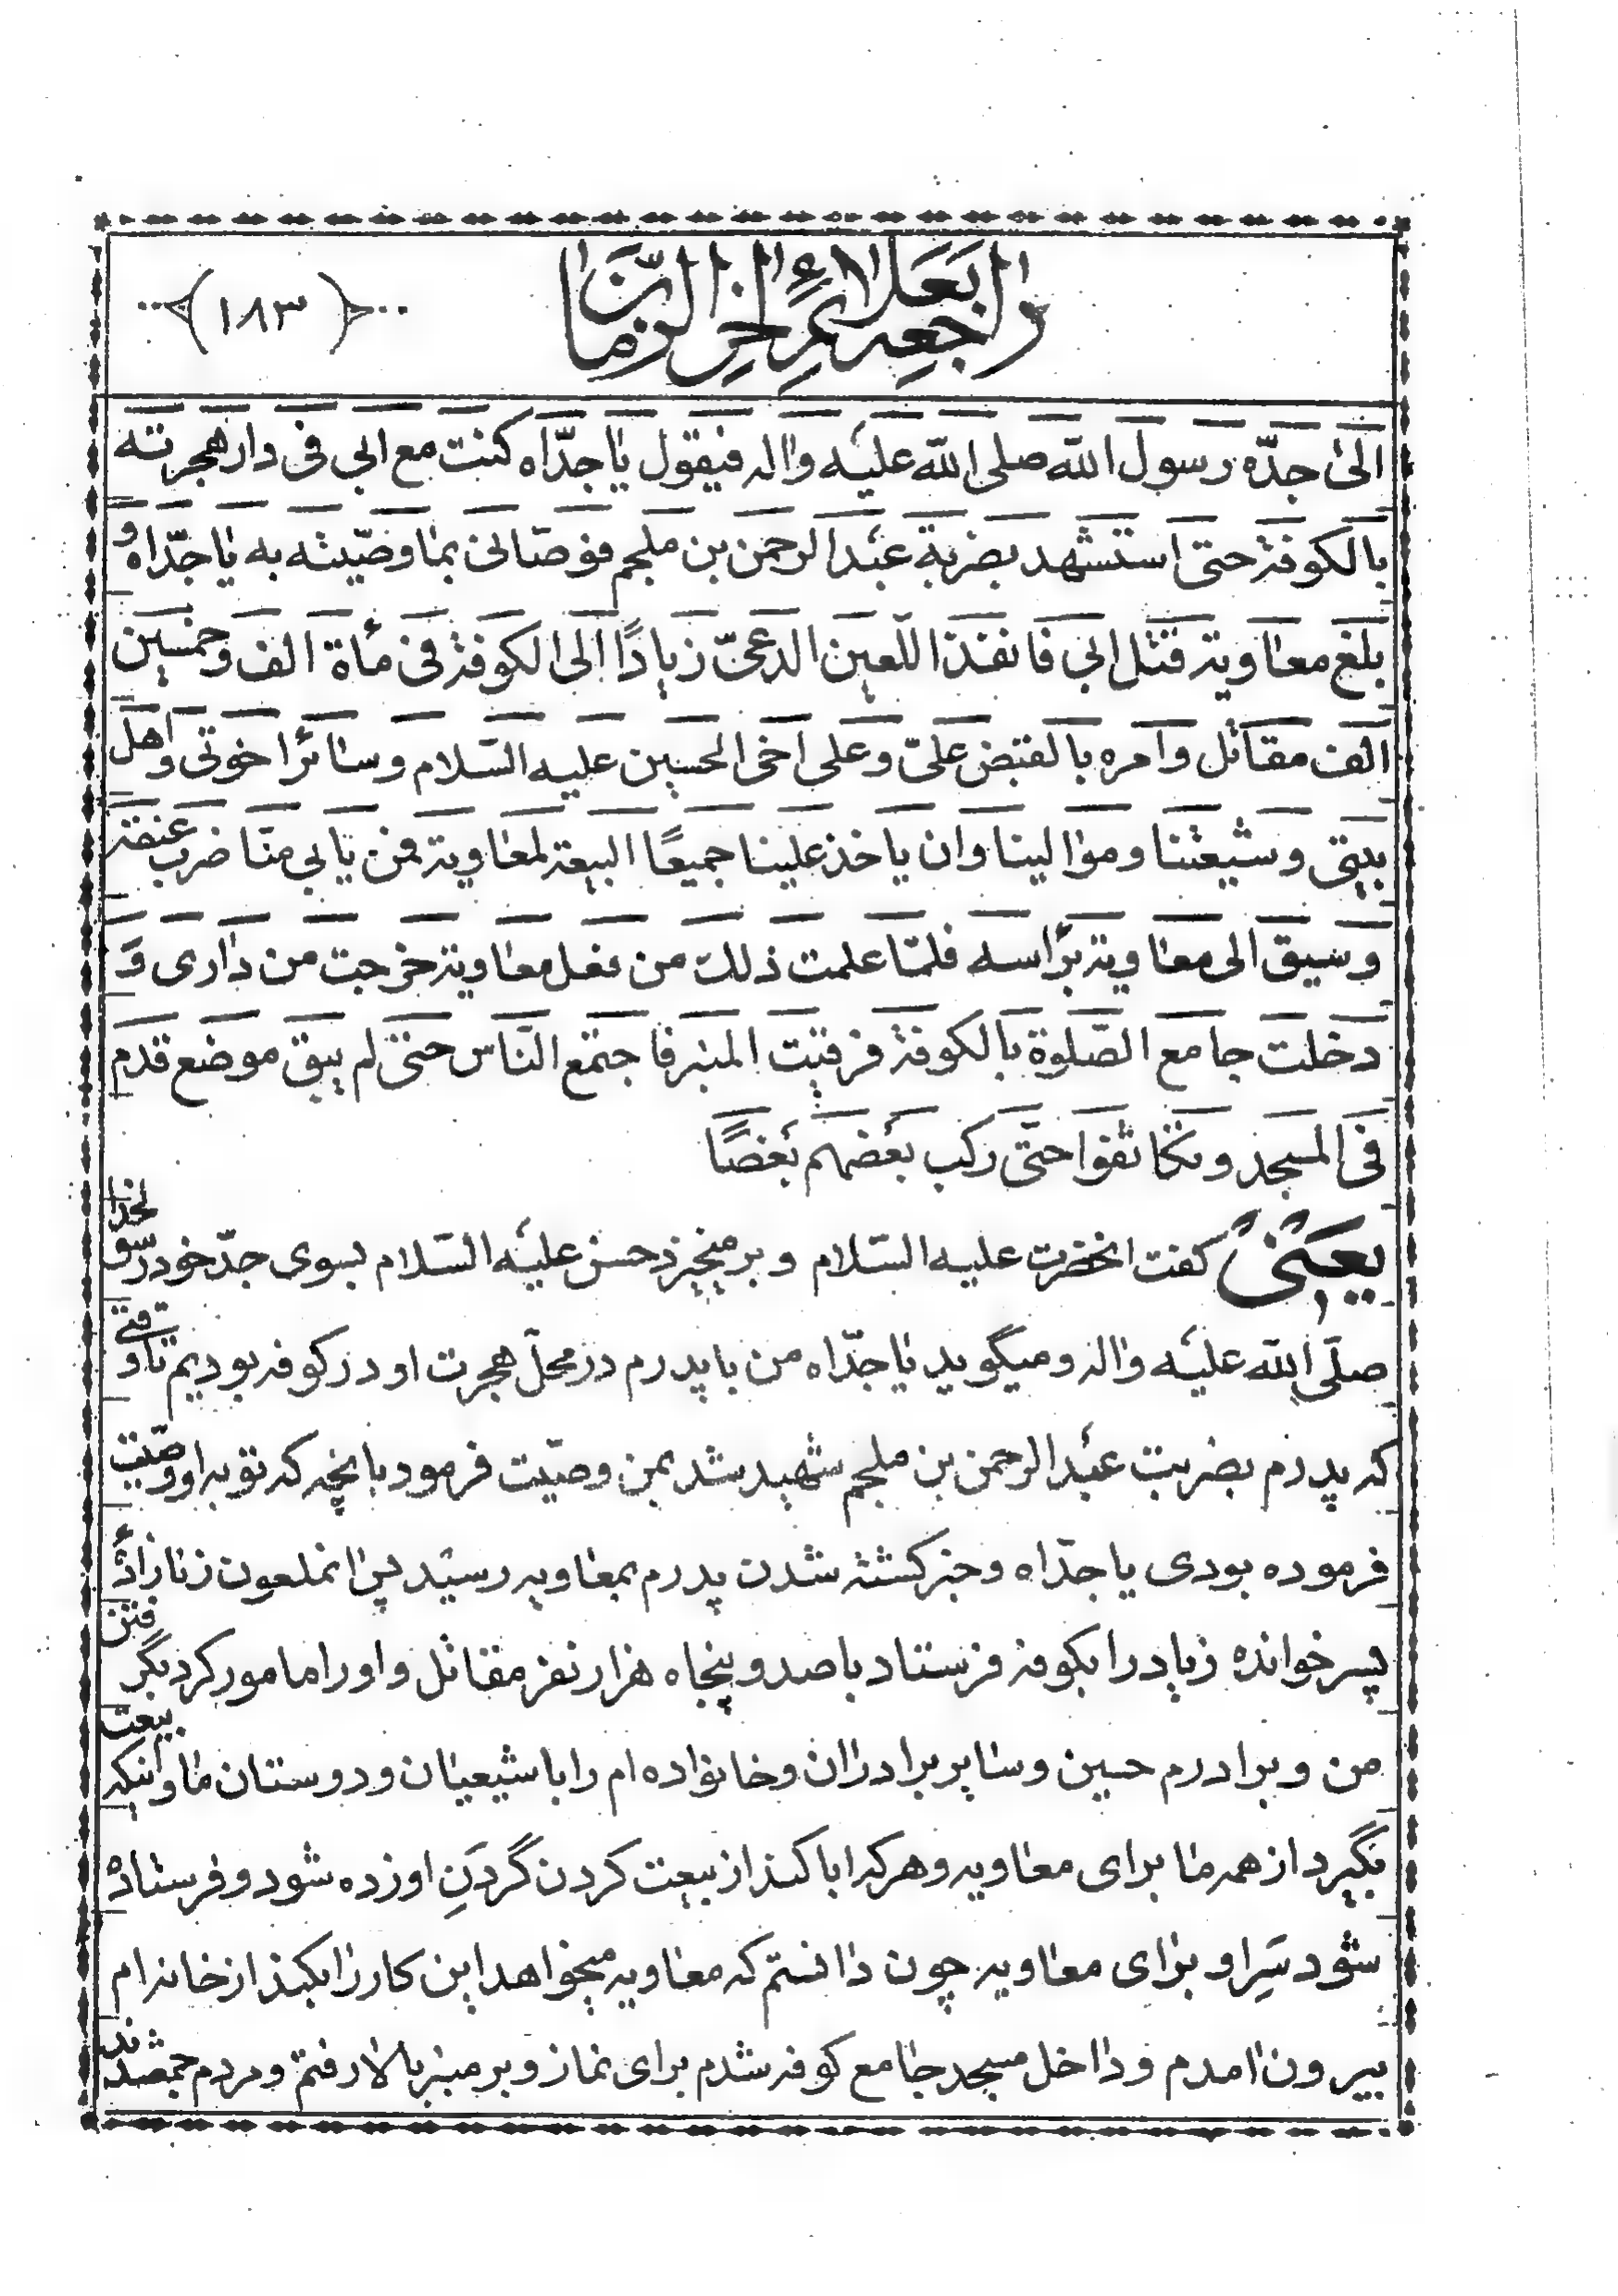 راجعه بعلائم اخر الزمان
(۱۸۳)
الی جدّه رسول الله صلی الله علیه واله فیقول یا جدّاه کنت مع ابی فی دار هجرته
بالکوفة حتی استشهد بضربة عبد الرحمن بن ملجم فوصّانی بما وصّیته به یا جدّاه و
بلغ معاویة قتل ابی فانفذ اللعین الدعیّ زیادًا الی الکوفة فی مأة الف وخمسین
الف مقاتل وامره بالقبض علیّ وعلی اخی الحسین علیه السّلام وسائر اخوتی واهل
بیتی وشیعتنا وموالینا وان یاخذ علینا جمیعًا البیعة لمعاویة فمن یابی منّا ضرب عنقه
وسیق الی معاویة براسه فلمّا علمت ذلک من فعل معاویة خرجت من داری و
دخلت جامع الصّلوة بالکوفة فرقیت المنبر فاجتمع النّاس حتی لم یبق موضع قدم
فی المسجد وتکاثفوا حتّی رکب بعضهم بعضًا
یعنی گفت انحضرت علیه السّلام و برمیخیزد حسن علیه السّلام بسوی جدّ خود رسو لخدا
صلّی الله علیه واله ومیگوید یا جدّاه من با پدرم در محلّ هجرت او در کوفه بودیم تا وقتی
که پدرم بضربت عبد الرحمن بن ملجم شهید شد بمن وصیّت فرمود بانچه که تو به او وصیّت
فرموده بودی یا جدّاه وخبر کشته شدن پدرم بمعاویه رسید پس انملعون زنازادۀ
پسر خوانده زیاد را بکوفه فرستاد با صد و پنجاه هزار نفر مقاتل و او را مامور کرد بگرفتن
من و برادرم حسین وسایر برادران وخانواده ام را با شیعیان و دوستان ما و اینکه بیعت
بگیرد از همه ما برای معاویه وهرکه ابا کند از بیعت کردن گردنِ او زده شود و فرستاده
شود سَرِ او برای معاویه چون دانستم که معاویه میخواهد این کار را بکند از خانه ام
بیرون امدم و داخل مسجد جامع کوفه شدم برای نماز و بر منبر بالا رفتم و مردم جمع شدند